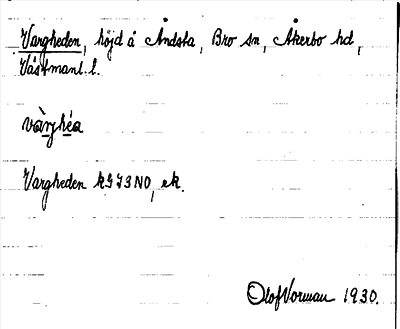 Vargheden, höjd å Åndsta, Bro sn, Åkerbo hd,
Västmanl. l.
vàrjhéa
Vargheden kGJ3NO, ek.
Olof Vorman 1930.